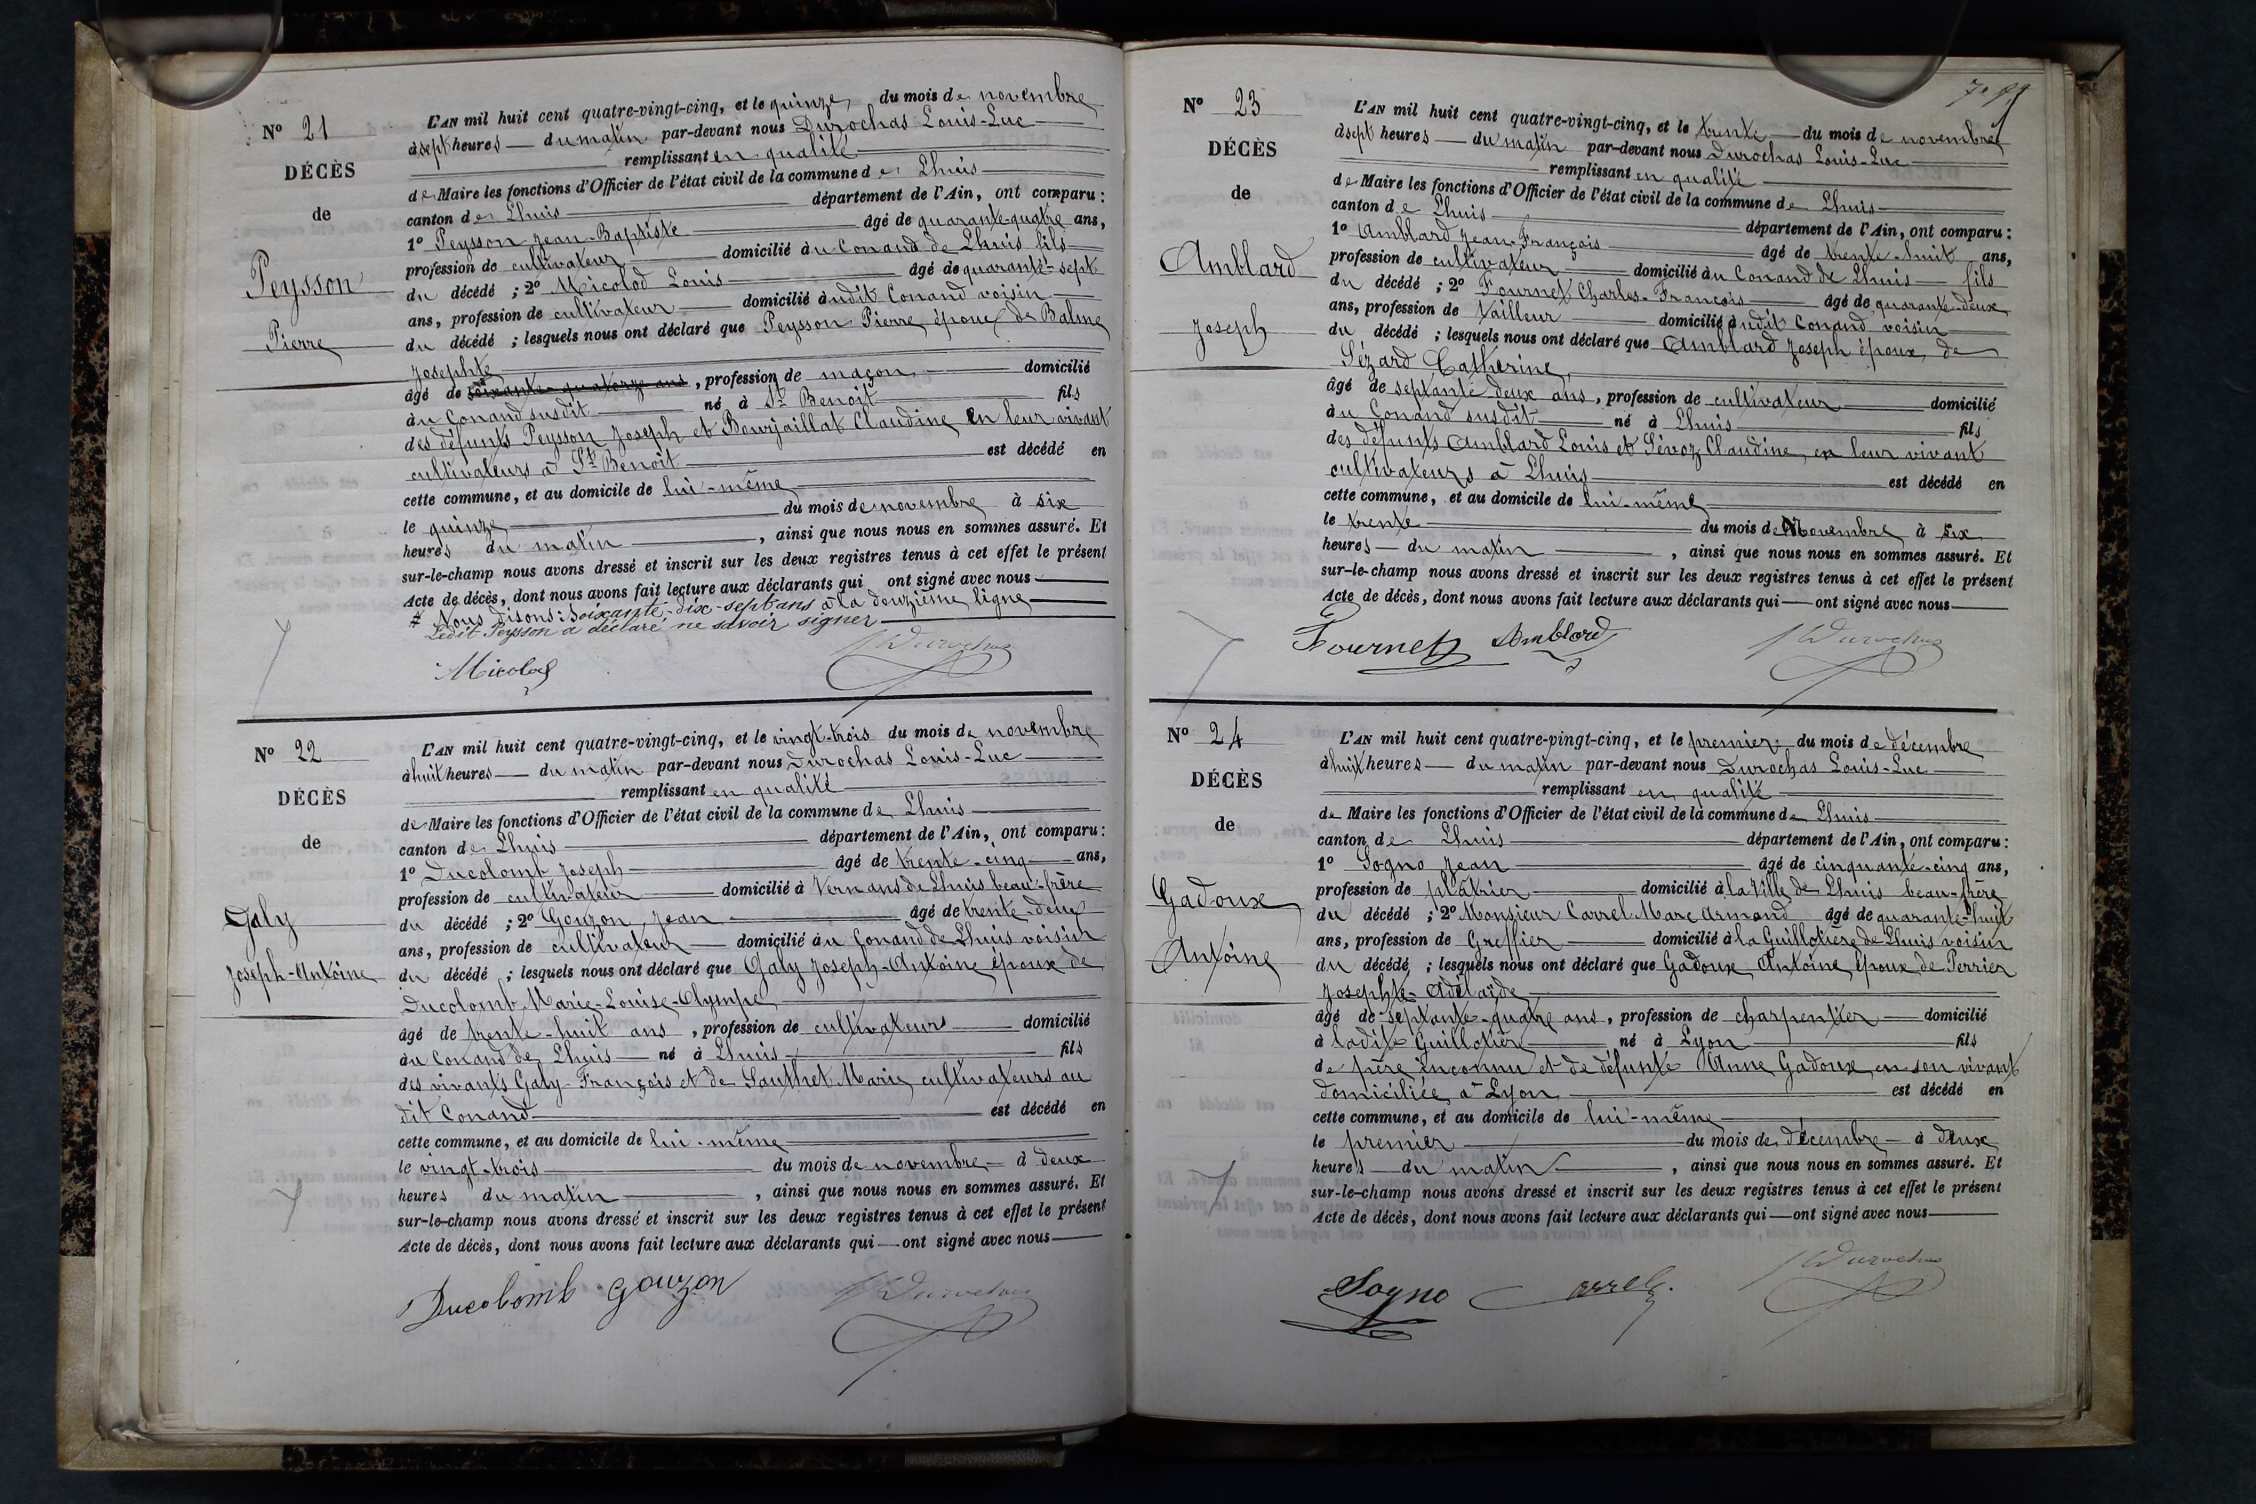 N° 21
DÉCÈS
de
Peysson
Pierre
L'AN mil huit cent quatre-vingt-cinq, et le quinze du mois de novembre
à sept heures du matin par-devant nous Durochas Louis-Luc
remplissant en qualité
de Maire les fonctions d'Officier de l'état civil de la commune de Lhuis
canton de Lhuis département de l'Ain, ont comparu :
1° Peysson Jean-Baptiste âgé de quarante-quatre ans,
profession de cultivateur domicilié au Conand de Lhuis fils
du décédé ; 2° Micolod Louis âgé de quarante-sept
ans, profession de cultivateur domicilié audit Conand voisin
du décédé ; lesquels nous ont déclaré que Peysson Pierre époux de Balme
Josephte
âgé de soixante-quatorze ans, profession de maçon domicilié
au Conand susdit né à St Benoit fils
des défunts Peysson Joseph et Bourjaillat Claudine en leur vivant
cultivateurs à St Benoit est décédé en
cette commune, et au domicile de lui-même
le quinze du mois de novembre à six
heures du matin, ainsi que nous nous en sommes assuré. Et
sur-le-champ nous avons dressé et inscrit sur les deux registres tenus à cet effet le présent
Acte de décès, dont nous avons fait lecture aux déclarants qui ont signé avec nous
Nous disons : Soixante-dix-sept ans à la douzième ligne
Ledit Peysson a déclaré ne savoir signer
Micolod Durochas
N° 22
DÉCÈS
de
Galy
Joseph-Antoine
L'AN mil huit cent quatre-vingt-cinq, et le vingt-trois du mois de novembre
à huit heures du matin par-devant nous Durochas Louis-Luc
remplissant en qualité
de Maire les fonctions d'Officier de l'état civil de la commune de Lhuis
canton de Lhuis département de l'Ain, ont comparu :
1° Ducolomb Joseph âgé de trente-cinq ans,
profession de cultivateur domicilié à Vernans de Lhuis beau-frère
du décédé ; 2° Gouzon Jean âgé de trente-deux
ans, profession de cultivateur domicilié au Conand de Lhuis voisin
du décédé ; lesquels nous ont déclaré que Galy Joseph-Antoine époux de
Ducolomb Marie-Louise-Olympe
âgé de trente-huit ans, profession de cultivateurs domicilié
au Conand de Lhuis né à Lhuis fils
des vivants Galy François et de Sauthet Marie cultivateurs au
dit Conand est décédé en
cette commune, et au domicile de lui-même
le vingt-trois du mois de novembre à deux
heures du matin, ainsi que nous nous en sommes assuré. Et
sur-le-champ nous avons dressé et inscrit sur les deux registres tenus à cet effet le présent
Acte de décès, dont nous avons fait lecture aux déclarants qui ont signé avec nous
Ducolomb Gouzon Durochas
N° 23
DÉCÈS
de
Amblard
Joseph
L'AN mil huit cent quatre-vingt-cinq, et le trente du mois de novembre
à sept heures du matin par-devant nous Durochas Louis-Luc
remplissant en qualité
de Maire les fonctions d'Officier de l'état civil de la commune de Lhuis
canton de Lhuis département de l'Ain, ont comparu :
1° Amblard Jean-François âgé de trente-huit ans,
profession de cultivateur domicilié au Conand de Lhuis fils
du décédé ; 2° Fournet Charles-François âgé de quarante-deux
ans, profession de tailleur domicilié audit Conand voisin
du décédé ; lesquels nous ont déclaré que Amblard Joseph époux de
Sézard Catherine,
âgé de septante deux ans, profession de cultivateur domicilié
au Conand susdit né à Lhuis fils
des défunts Amblard Louis et Sévoz Claudine, en leur vivant
cultivateurs à Lhuis est décédé en
cette commune, et au domicile de lui-même
le trente du mois de Novembre à six
heures du matin, ainsi que nous nous en sommes assuré. Et
sur-le-champ nous avons dressé et inscrit sur les deux registres tenus à cet effet le présent
Acte de décès, dont nous avons fait lecture aux déclarants qui ont signé avec nous
Fournet Amblard Durochas
N° 24
DÉCÈS
de
Gadoux
Antoine
L'AN mil huit cent quatre-vingt-cinq, et le premier du mois de décembre
à huit heures du matin par-devant nous Durochas Louis-Luc
remplissant en qualité
de Maire les fonctions d'Officier de l'état civil de la commune de Lhuis
canton de Lhuis département de l'Ain, ont comparu :
1° Sogno Jean âgé de cinquante-cinq ans,
profession de plâtrier domicilié à la Ville de Lhuis beau-frère
du décédé ; 2° Monsieur Carrel Marc Armand âgé de quarante-huit
ans, profession de Greffier domicilié à la Guillotière de Lhuis voisin
du décédé ; lesquels nous ont déclaré que Gadoux Antoine, époux de Perrier
Josephte-Adélaïde
âgé de septante-quatre ans, profession de charpentier domicilié
à ladite Guillotière né à Lyon fils
de père inconnu et de défunte Anne Gadoux, en son vivant
domiciliée à Lyon est décédé en
cette commune, et au domicile de lui-même
le premier du mois de décembre à deux
heures du matin, ainsi que nous nous en sommes assuré. Et
sur-le-champ nous avons dressé et inscrit sur les deux registres tenus à cet effet le présent
Acte de décès, dont nous avons fait lecture aux déclarants qui ont signé avec nous
Sogno Carrel Durochas